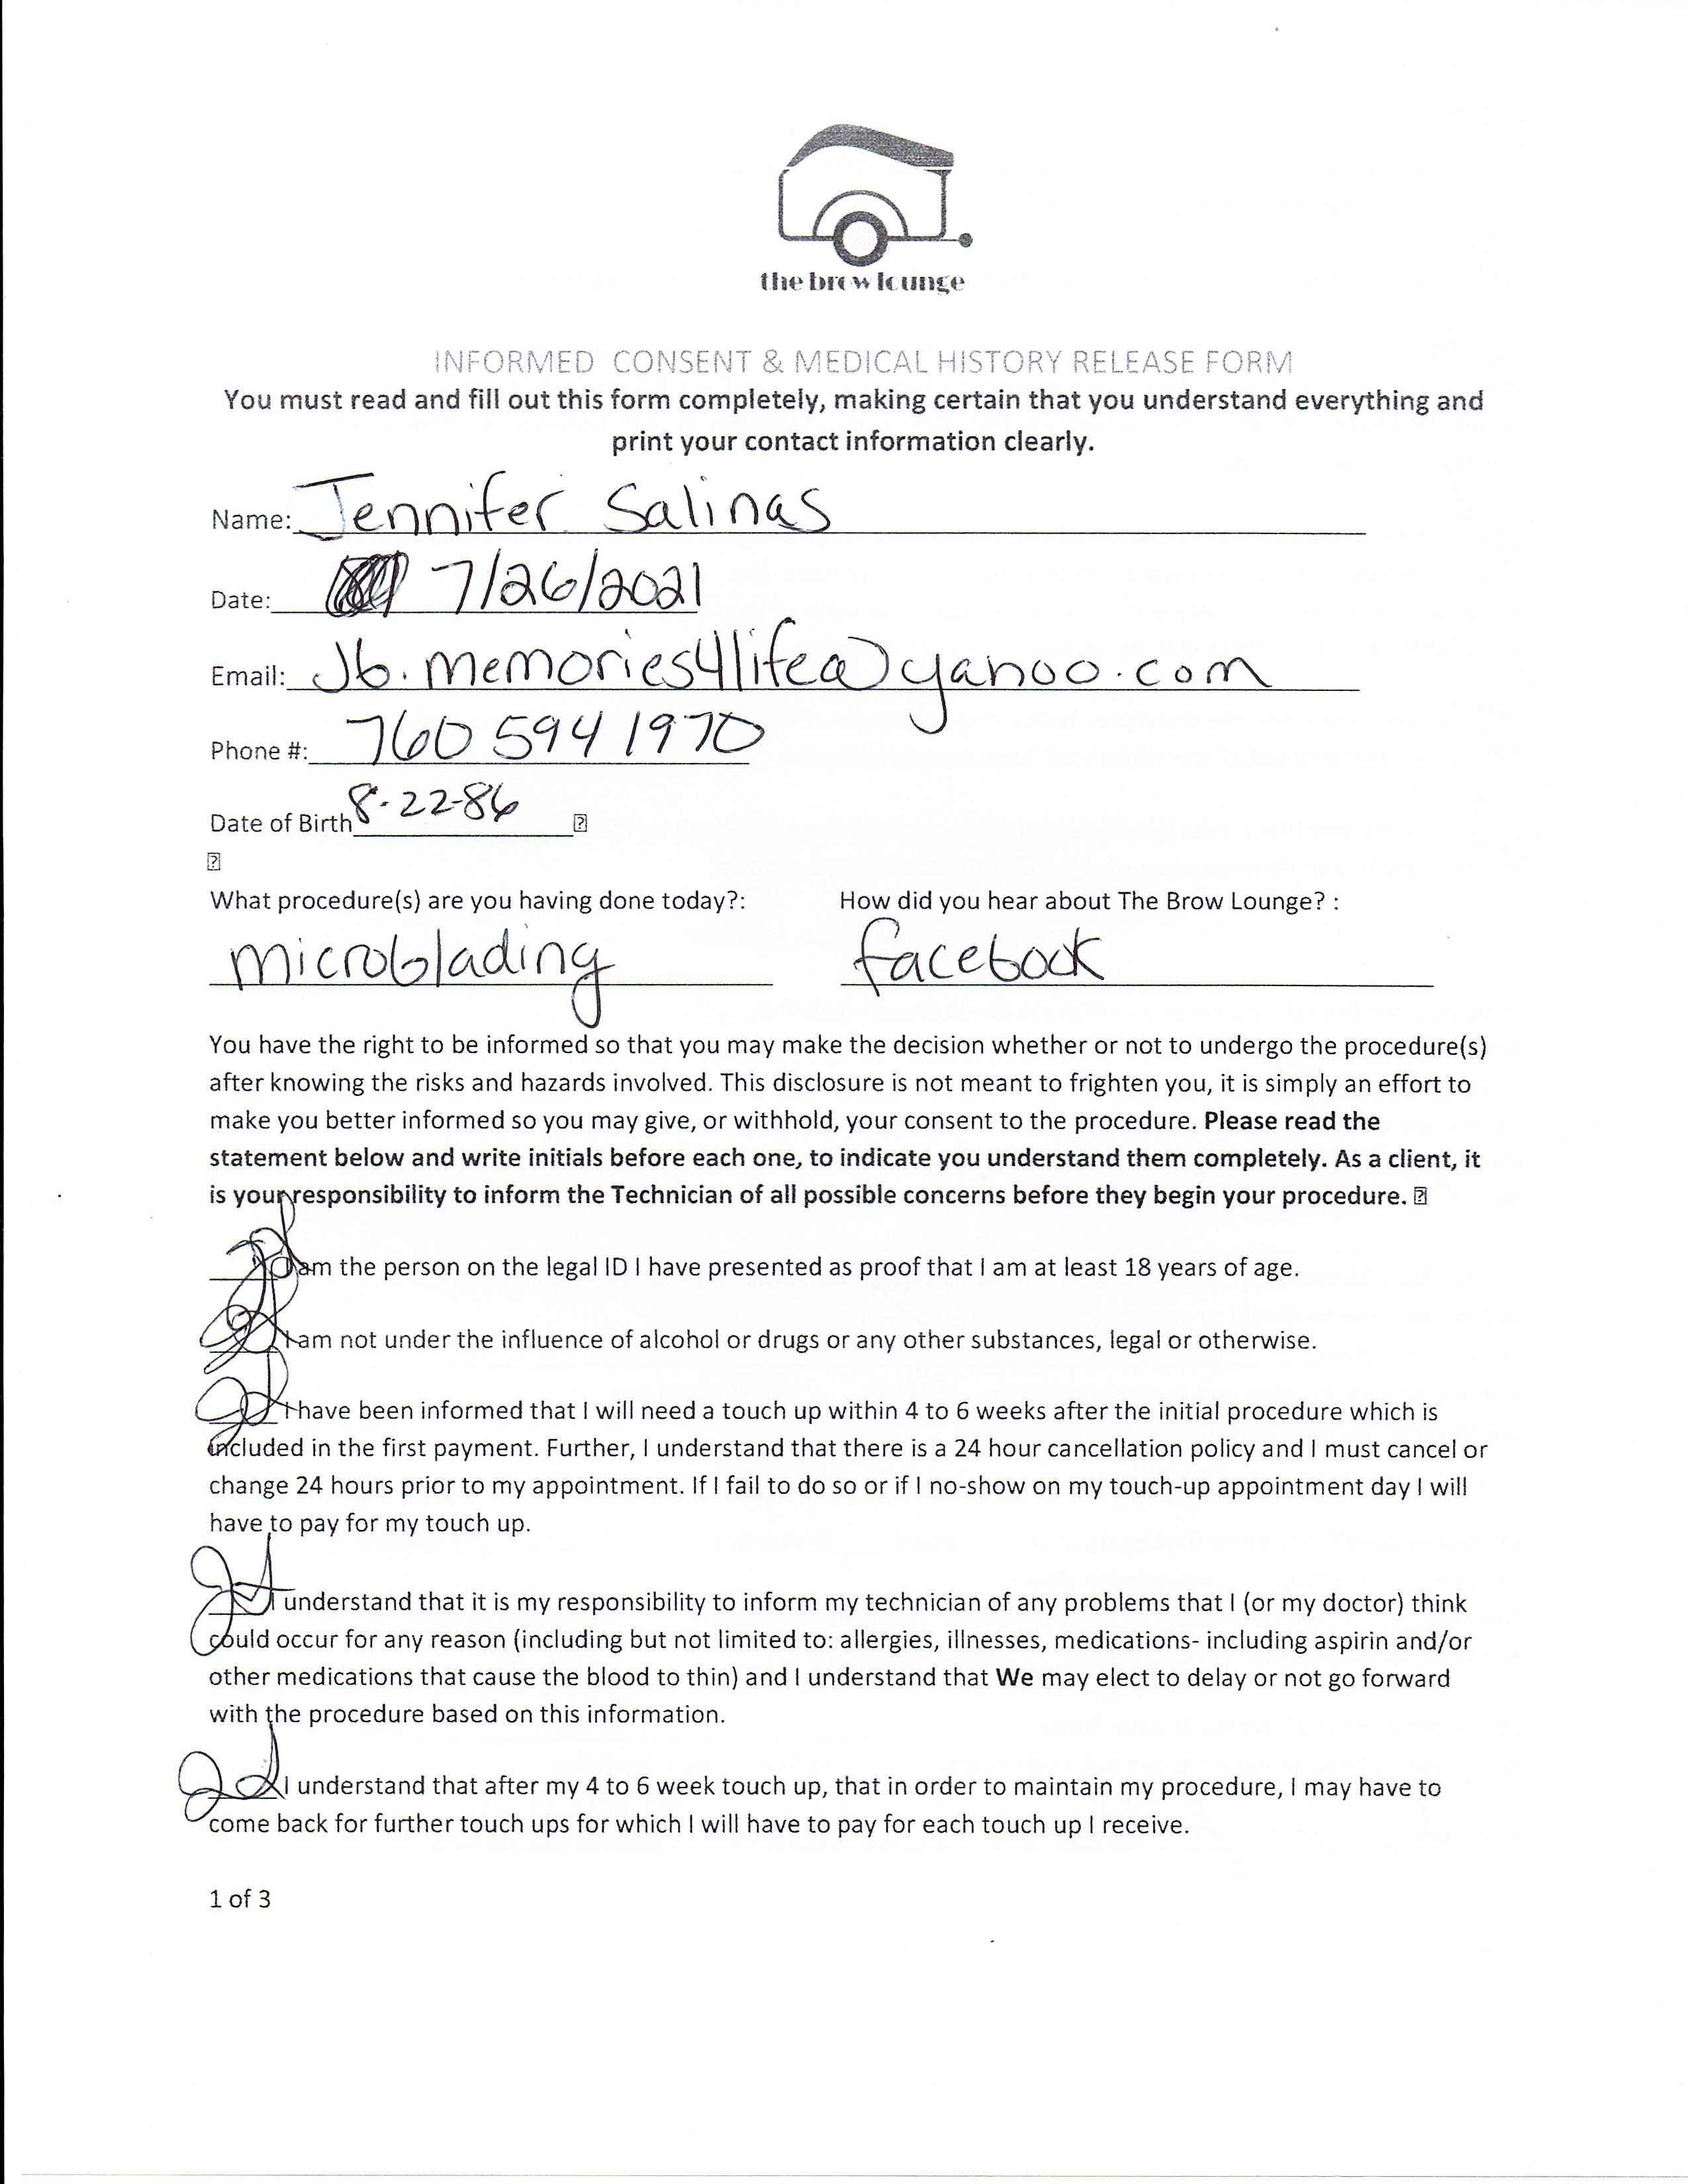 the brow lounge
INFORMED CONSENT & MEDICAL HISTORY RELEASE FORM
You must read and fill out this form completely, making certain that you understand everything and
print your contact information clearly.
Name: Jennifer Salinas
Date: 7/26/2021
Email: Jb.memories4life@yahoo.com
Phone #: 760 594 1970
Date of Birth 8-22-86
What procedure(s) are you having done today?: How did you hear about The Brow Lounge? :
microblading facebook
You have the right to be informed so that you may make the decision whether or not to undergo the procedure(s)
after knowing the risks and hazards involved. This disclosure is not meant to frighten you, it is simply an effort to
make you better informed so you may give, or withhold, your consent to the procedure. Please read the
statement below and write initials before each one, to indicate you understand them completely. As a client, it
is your responsibility to inform the Technician of all possible concerns before they begin your procedure.
am the person on the legal ID I have presented as proof that I am at least 18 years of age.
I am not under the influence of alcohol or drugs or any other substances, legal or otherwise.
I have been informed that I will need a touch up within 4 to 6 weeks after the initial procedure which is
included in the first payment. Further, I understand that there is a 24 hour cancellation policy and I must cancel or
change 24 hours prior to my appointment. If I fail to do so or if I no-show on my touch-up appointment day I will
have to pay for my touch up.
I understand that it is my responsibility to inform my technician of any problems that I (or my doctor) think
could occur for any reason (including but not limited to: allergies, illnesses, medications- including aspirin and/or
other medications that cause the blood to thin) and I understand that We may elect to delay or not go forward
with the procedure based on this information.
I understand that after my 4 to 6 week touch up, that in order to maintain my procedure, I may have to
come back for further touch ups for which I will have to pay for each touch up I receive.
1 of 3